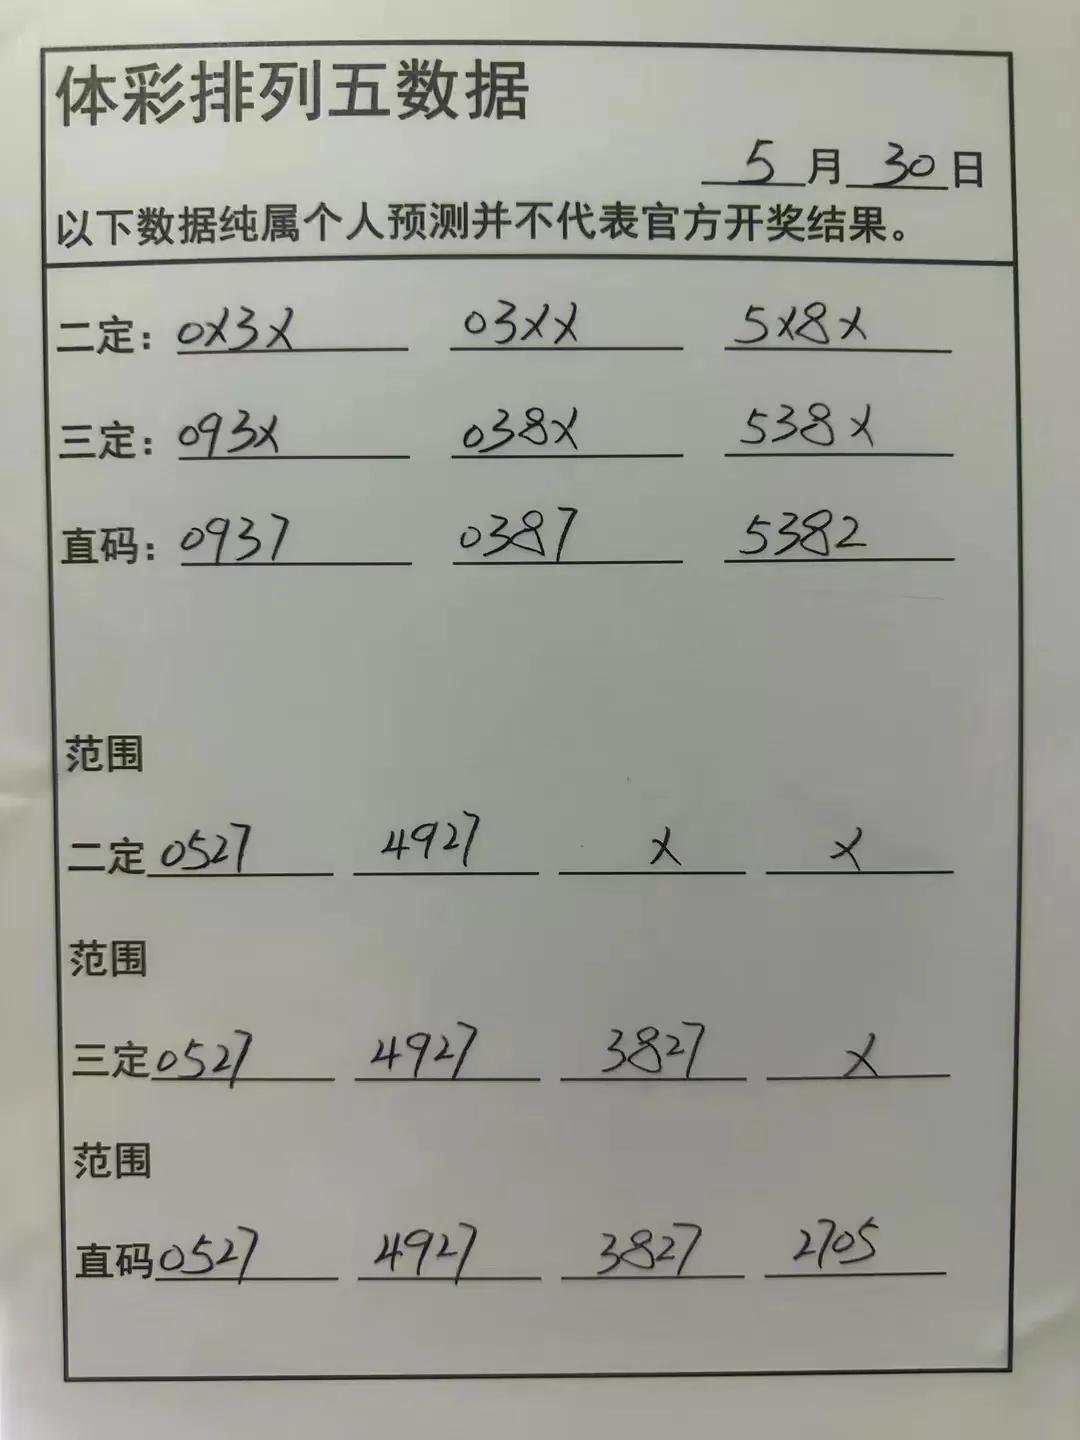 体彩排列五数据
5月30日
以下数据纯属个人预测并不代表官方开奖结果。
二定：0X3X 03XX 5X8X
三定：093X 038X 538X
直码：0937 0387 5382
范围
二定 0527 4927 X X
范围
三定 0527 4927 3827 X
范围
直码 0527 4927 3827 2705